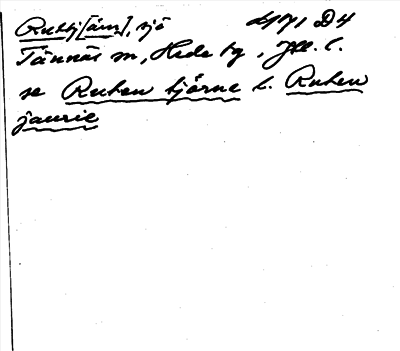 Rutbj[ärn], sjö 471 D4
Tännäs sn, Hede tg, Jll. l.
se Ruten tjärne l. Ruten
jaurie